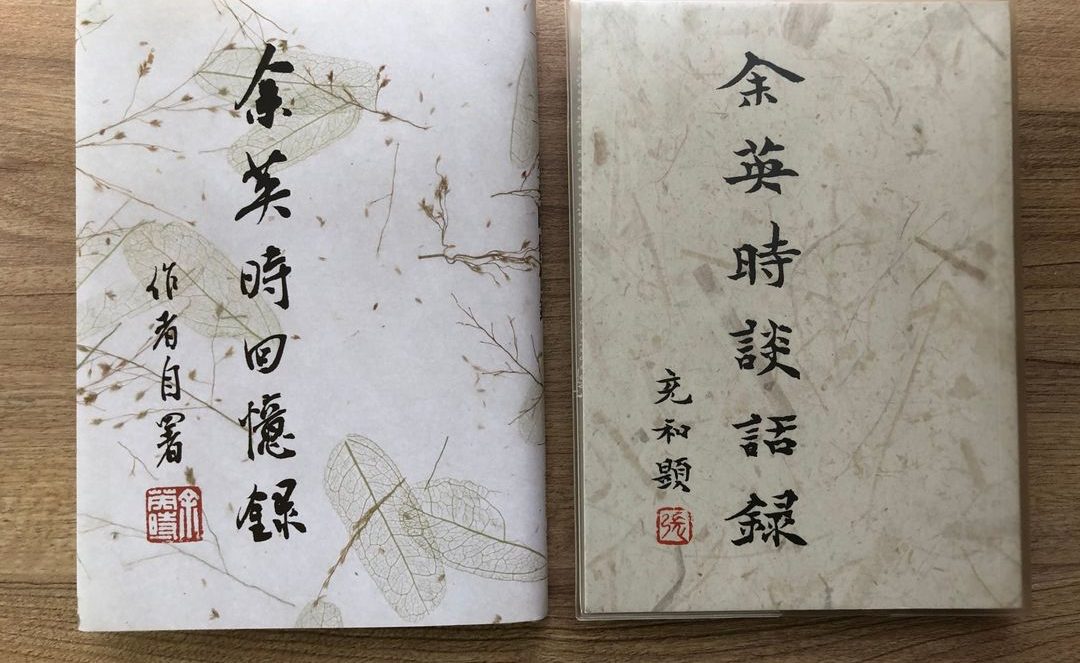 余英時回憶録
作者自署
余英時
余英時談話録
充和題
張